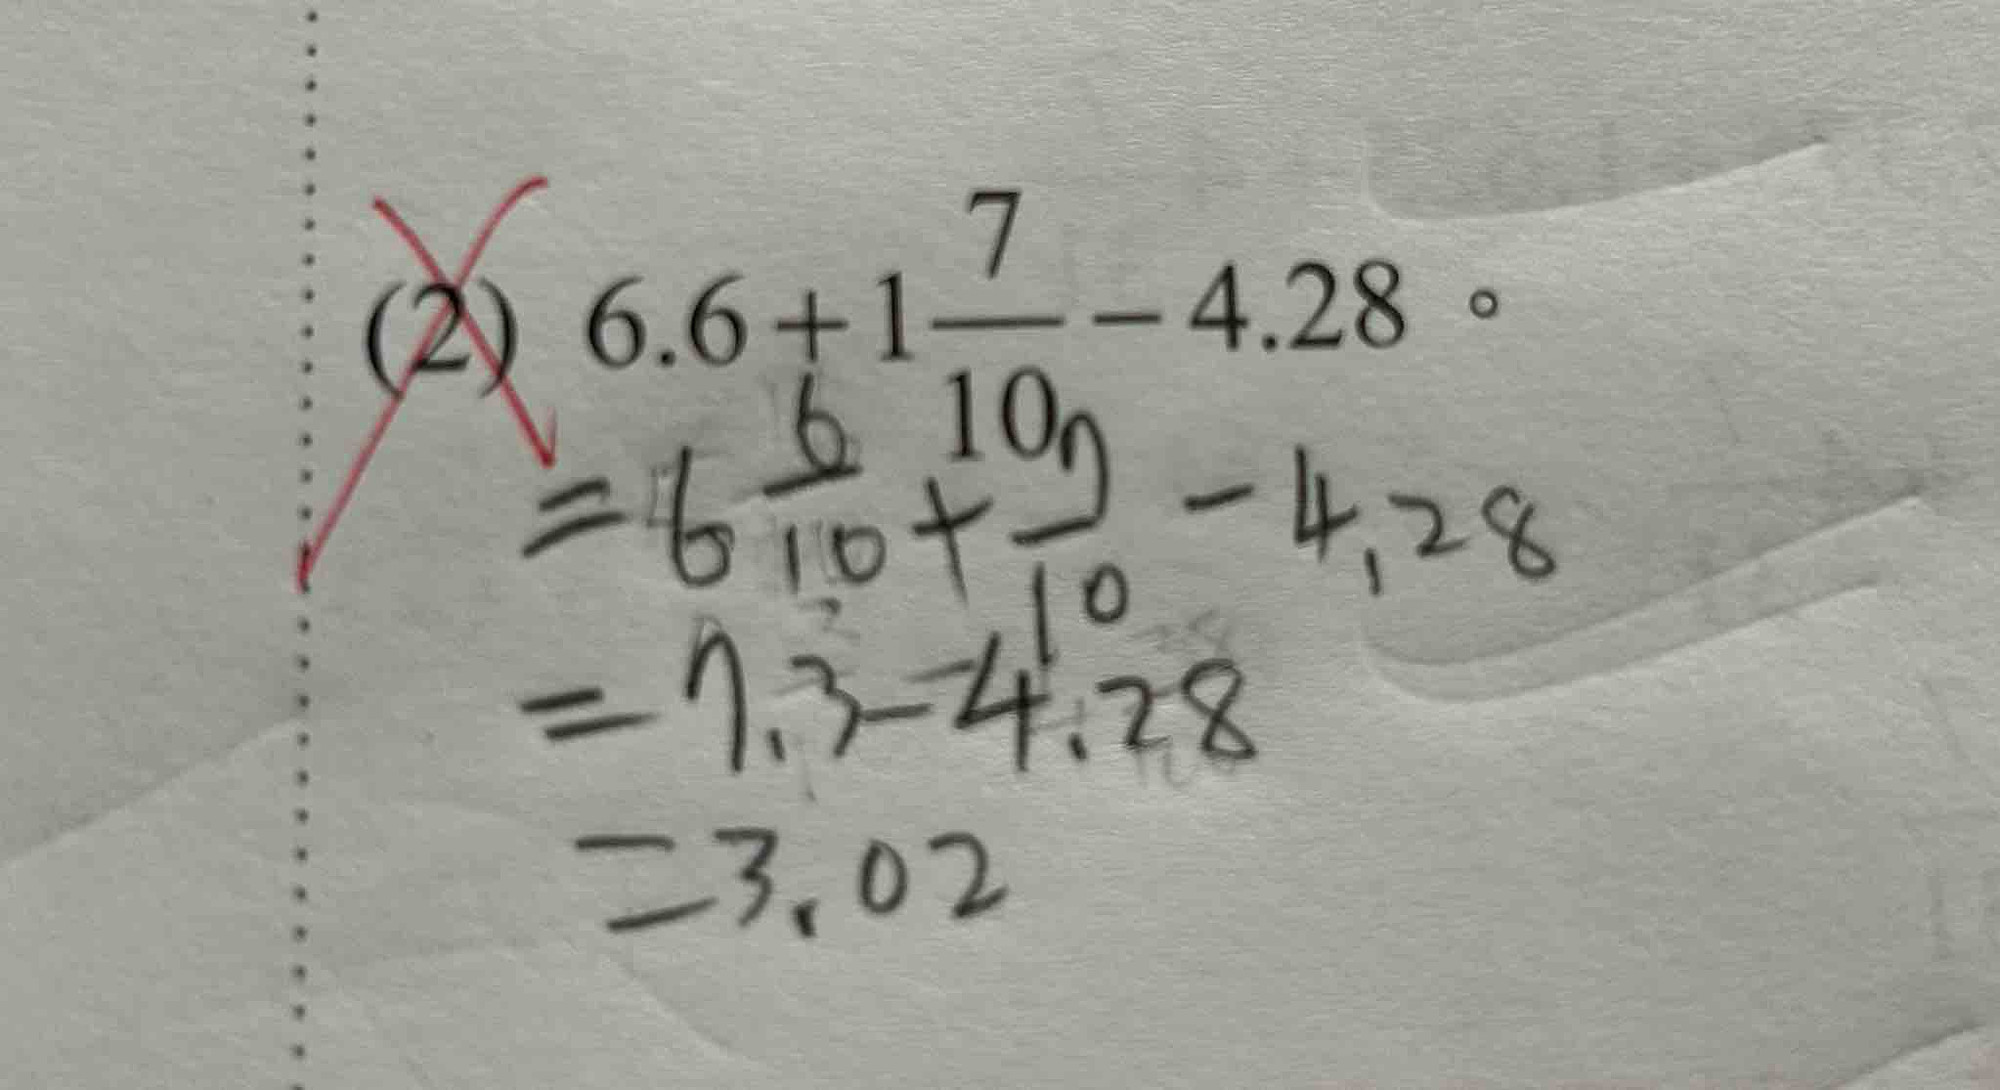 (2) 6.6+1 7/10 −4.28。
=6 6/10 + 7/10 −4.28
=7.3−4.28
=3.02